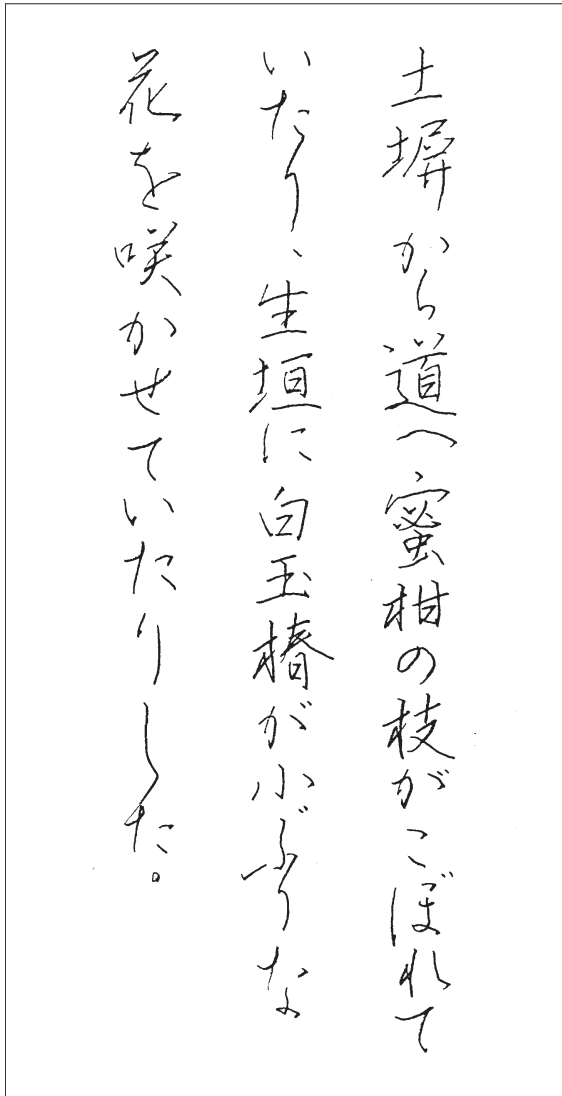 土塀から道へ蜜柑の枝がこぼれて
いたり、生垣に白玉椿が小ぶりな
花を咲かせていたりした。